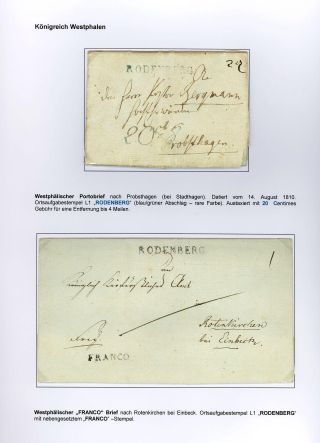 Königreich Westphalen
RODENBERG
An
den Herrn Pastor Bergmann
Probsthagen
Westphälischer Portobrief nach Probsthagen (bei Stadthagen). Datiert vom 14. August 1810.
Ortsaufgabestempel L1 „RODENBERG“ (blau/grüner Abschlag – rare Farbe). Austaxiert mit 20 Centimes
Gebühr für eine Entfernung bis 4 Meilen.
RODENBERG
an
Amt
Rotenkirchen
bei Einbeck
FRANCO
Westphälischer „FRANCO“ Brief nach Rotenkirchen bei Einbeck. Ortsaufgabestempel L1 „RODENBERG“
mit nebengesetztem „FRANCO“ –Stempel.